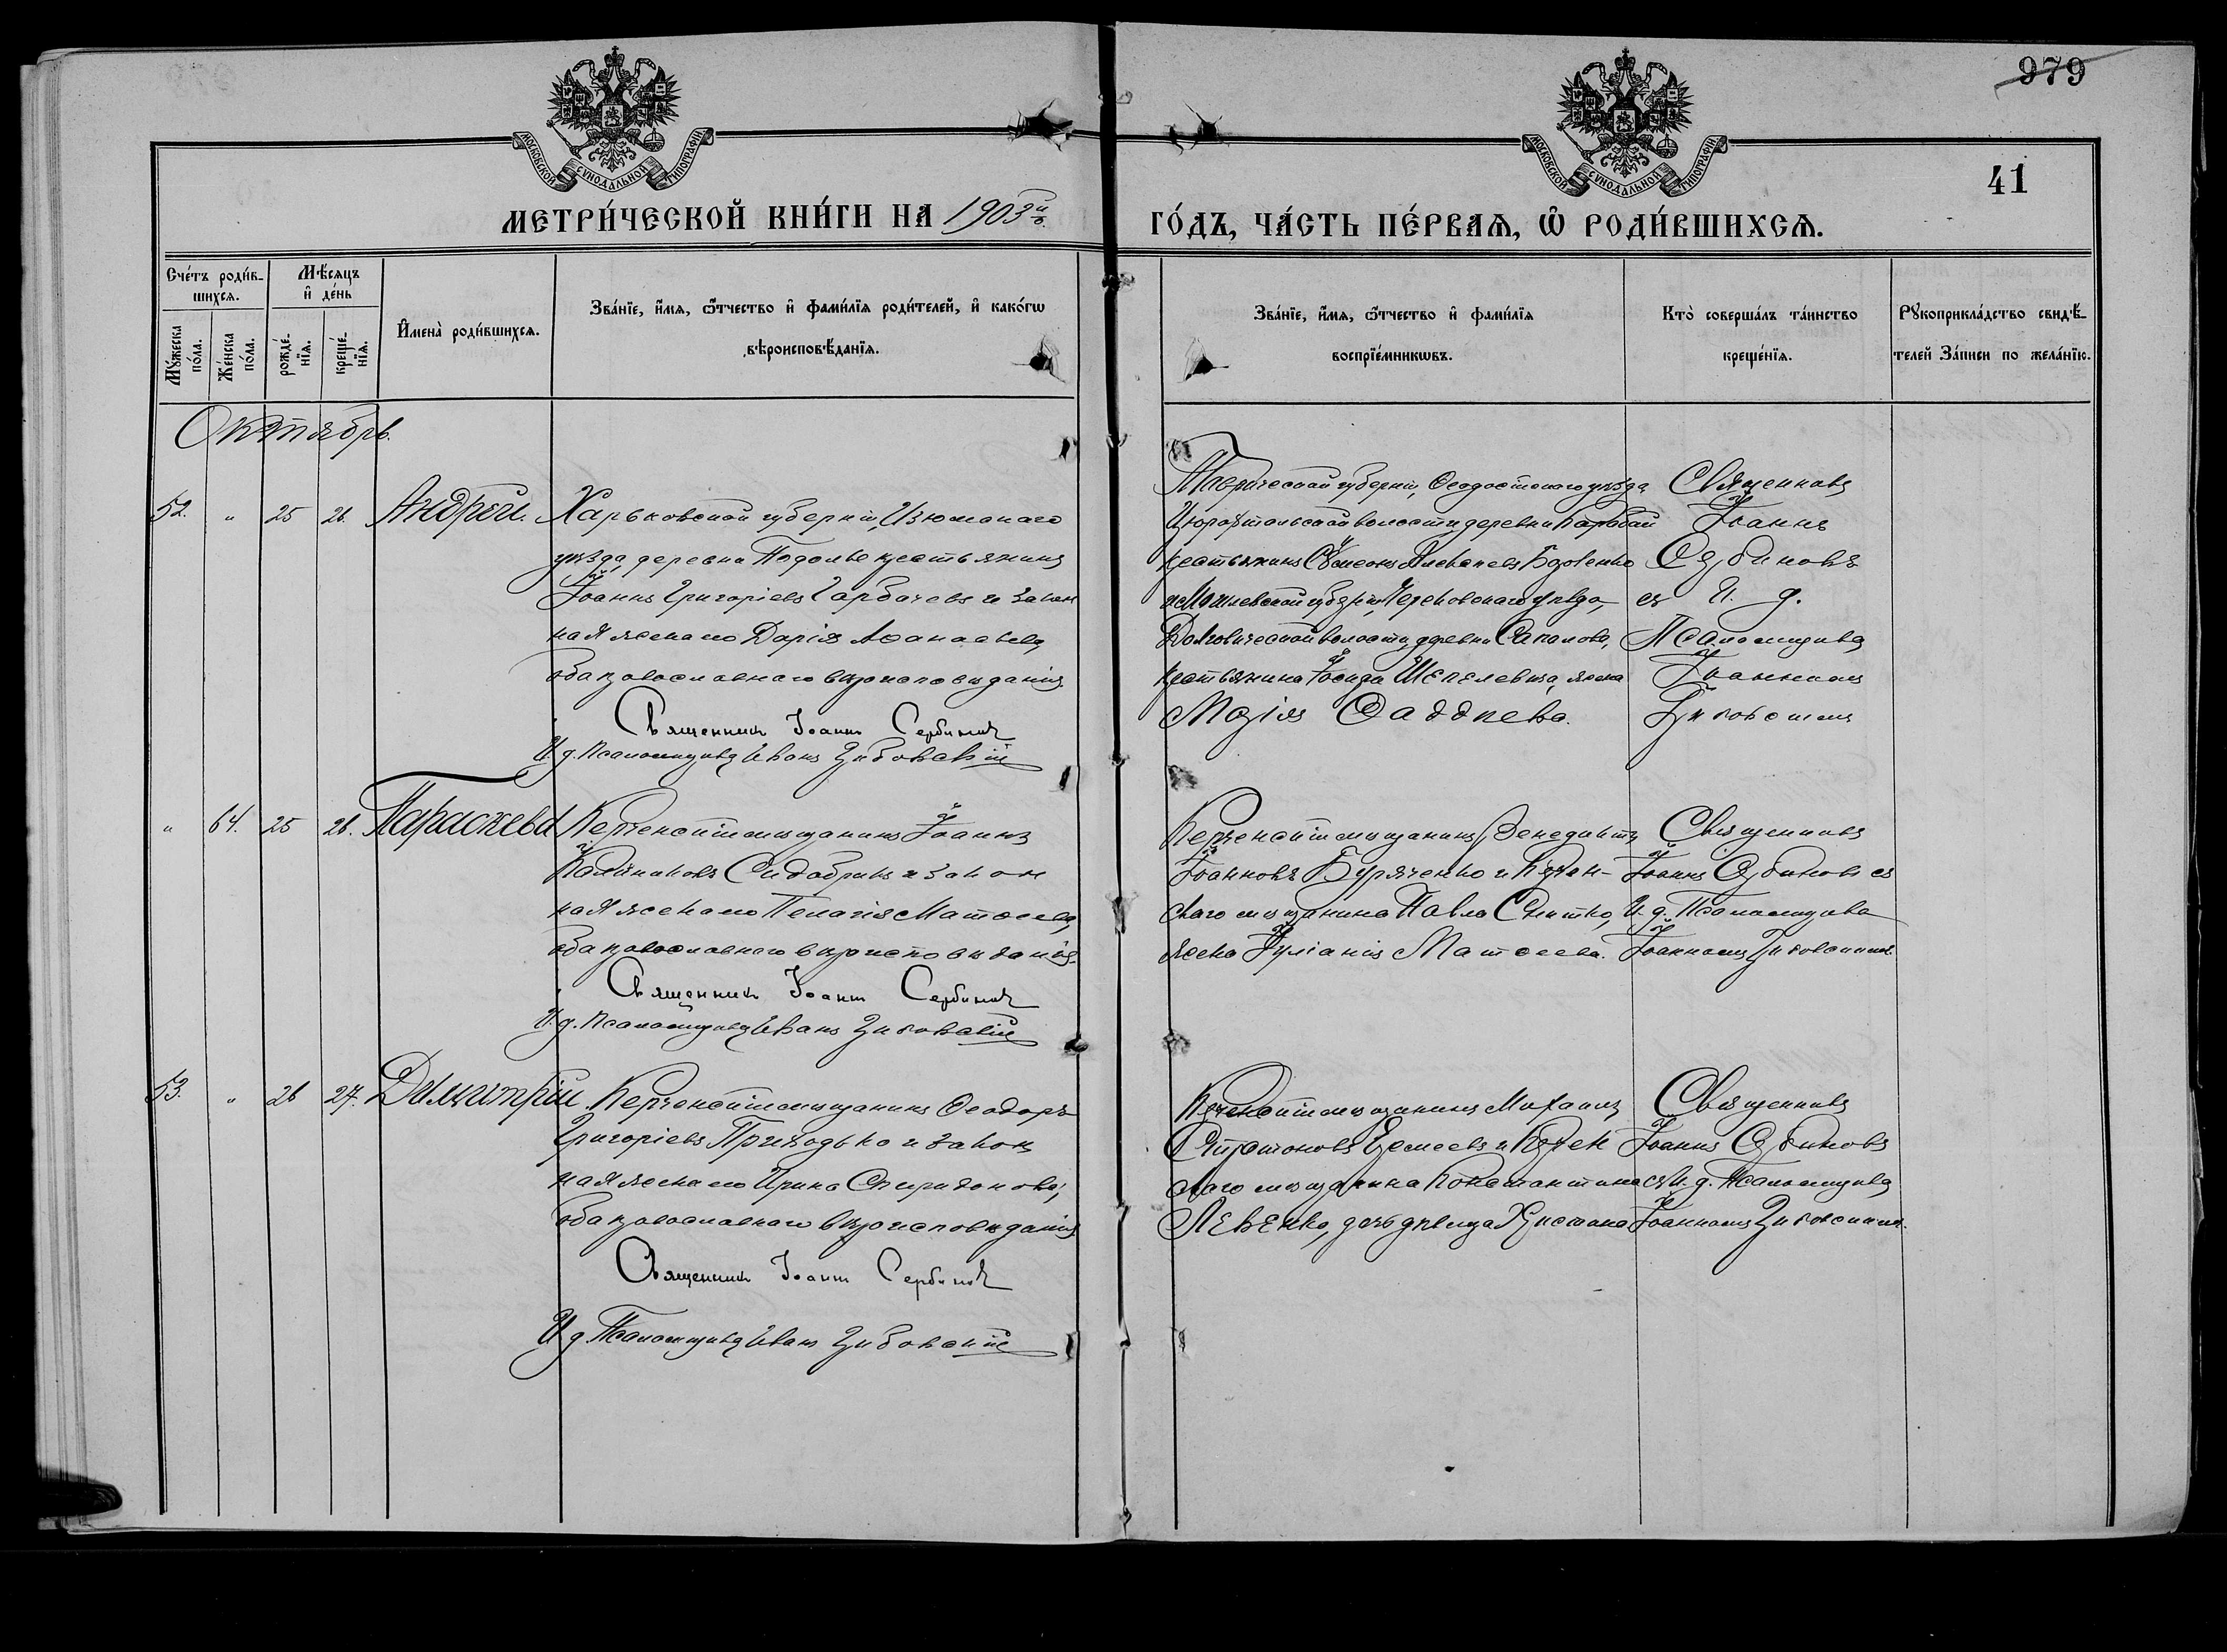 979
41
МОСКОВСКОЙ СѴНОДАЛЬНОЙ ТИПОГРАФІИ
МОСКОВСКОЙ СѴНОДАЛЬНОЙ ТИПОГРАФІИ
МЕТРИ́ЧЕСКОЙ КНИ́ГИ НА 1903й
ГО́ДЪ, ЧА́СТЬ ПЕ́РВАѦ, Ѽ РОДИ́ВШИХСѦ.
Сче́тъ роди́в-
шихсѧ.
Мѣ́сѧцъ
и҆ де́нь
Мꙋ́жеска
по́ла.
Же́нска
по́ла.
рожде́-
нїѧ.
креще́-
нїѧ.
И҆мена̀ роди́вшихсѧ.
Зва́нїе, и҆́мѧ, ѻ҆́тчество и҆ фами́лїѧ роди́телей, и҆ како́гѡ
вѣроисповѣ́данїѧ.
Зва́нїе, и҆́мѧ, ѻ҆́тчество и҆ фами́лїѧ
воспрїе́мникѡвъ.
Кто̀ соверша́лъ та́инство
креще́нїѧ.
Рꙋкоприкла́дство свидѣ́-
телей За́писи по жела́нїю.
Октябрь.
52. " 25 26. Андрей.
Харьковской губерніи, Изюмскаго
уѣзда, деревни Подолье крестьянинъ
Іоаннъ Григоріевъ Гарбачевъ и закон
ная жена его Дарія Аѳанасіева,
оба православнаго вѣроисповѣданія.
Священникъ Іоаннъ Сербиновъ
И. д. Псаломщика Иванъ Цибовскій
Таврической губерніи, Ѳеодосійскаго уѣзда,
волости деревни
крестьянинъ Сѵмеонъ
и Могилевской губерніи, уѣзда,
волости, деревни
крестьянина Іосифа Шепелевича, жена
Марія Ѳаддеева.
Священникъ
Іоаннъ
Сербиновъ
съ И. д.
Псаломщика
Іоанномъ
Цибовскимъ
" 64. 25 26. Параскева
Керченскій мѣщанинъ Іоаннъ
Каллиниковъ и закон
ная жена его Пелагія Матѳеева,
оба православнаго вѣроисповѣданія.
Священникъ Іоаннъ Сербиновъ
И. д. Псаломщика Иванъ Цибовскій
Керченскій мѣщанинъ Венедиктъ
Іоанновъ Буряченко и Керчен-
скаго мѣщанина Павла Снитко,
жена Іуліанія Матѳеева.
Священникъ
Іоаннъ Сербиновъ съ
И. д. Псаломщика
Іоанномъ Цибовскимъ.
53. " 26 27. Димитрій
Керченскій мѣщанинъ Ѳеодоръ
Григоріевъ Приходько и закон
ная жена его Ирина Спиридонова,
оба православнаго вѣроисповѣданія.
Священникъ Іоаннъ Сербиновъ
И. д. Псаломщика Иванъ Цибовскій
Керченскій мѣщанинъ Михаилъ
Еремеевъ и Керчен
скаго мѣщанина Константина
Левенко, дочь дѣвица
Священникъ
Іоаннъ Сербиновъ
съ И. д. Псаломщика
Іоанномъ Цибовскимъ.